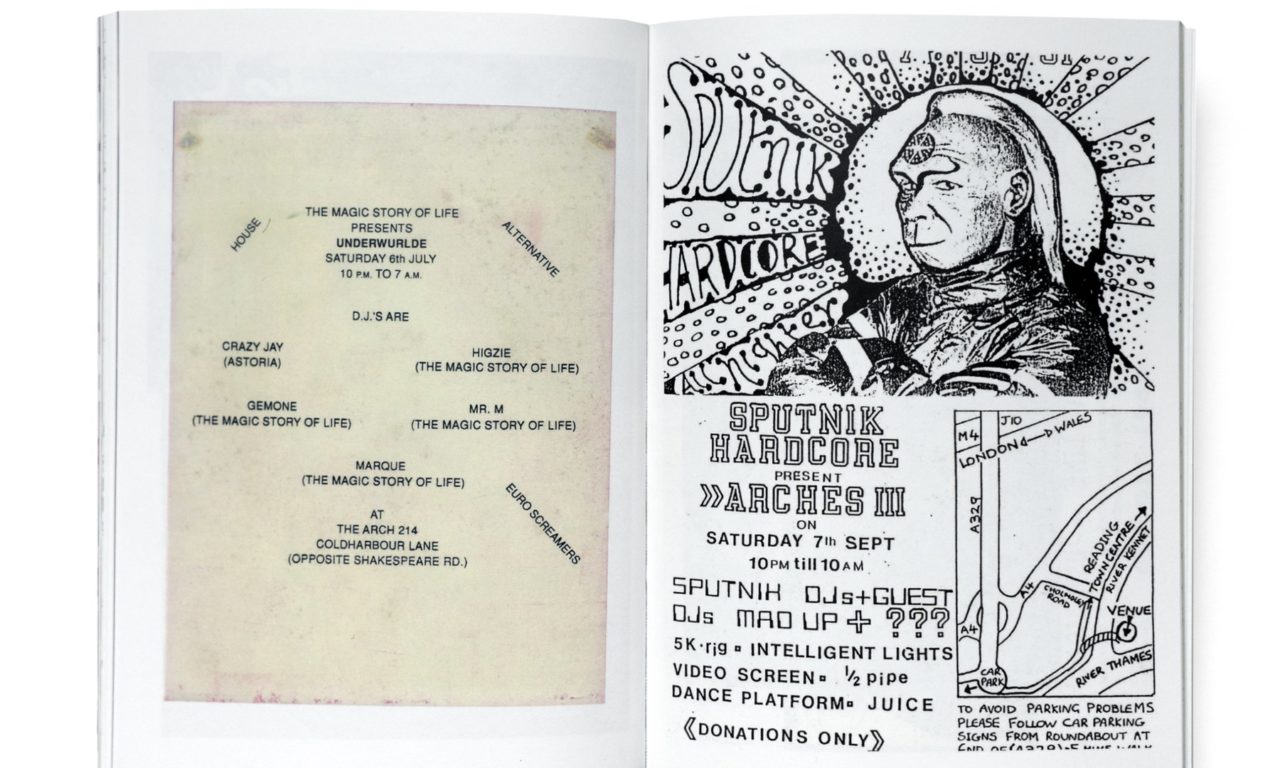 THE MAGIC STORY OF LIFE
PRESENTS
UNDERWURLDE
SATURDAY 6th JULY
10 P.M. TO 7 A.M.
HOUSE
ALTERNATIVE
D.J.'S ARE
CRAZY JAY
(ASTORIA)
HIGZIE
(THE MAGIC STORY OF LIFE)
GEMONE
(THE MAGIC STORY OF LIFE)
MR. M
(THE MAGIC STORY OF LIFE)
MARQUE
(THE MAGIC STORY OF LIFE)
EURO SCREAMERS
AT
THE ARCH 214
COLDHARBOUR LANE
(OPPOSITE SHAKESPEARE RD.)
SPUTNIK
HARDCORE
Allnighter
SPUTNIK
HARDCORE
PRESENT
»ARCHES III
ON
SATURDAY 7th SEPT
10PM till 10AM
SPUTNIK DJs+GUEST
DJs MAD UP + ???
5K·rig ▫ INTELLIGENT LIGHTS
VIDEO SCREEN▫ 1/2 pipe
DANCE PLATFORM▫ JUICE
《DONATIONS ONLY》
M4
J10
LONDON ↔ WALES
A329
READING
TOWN CENTRE
RIVER KENNET
A4
CHOLMELEY
ROAD
VENUE
A4
CAR
PARK
RIVER THAMES
TO AVOID PARKING PROBLEMS
PLEASE FOLLOW CAR PARKING
SIGNS FROM ROUNDABOUT AT
END OF (A329)